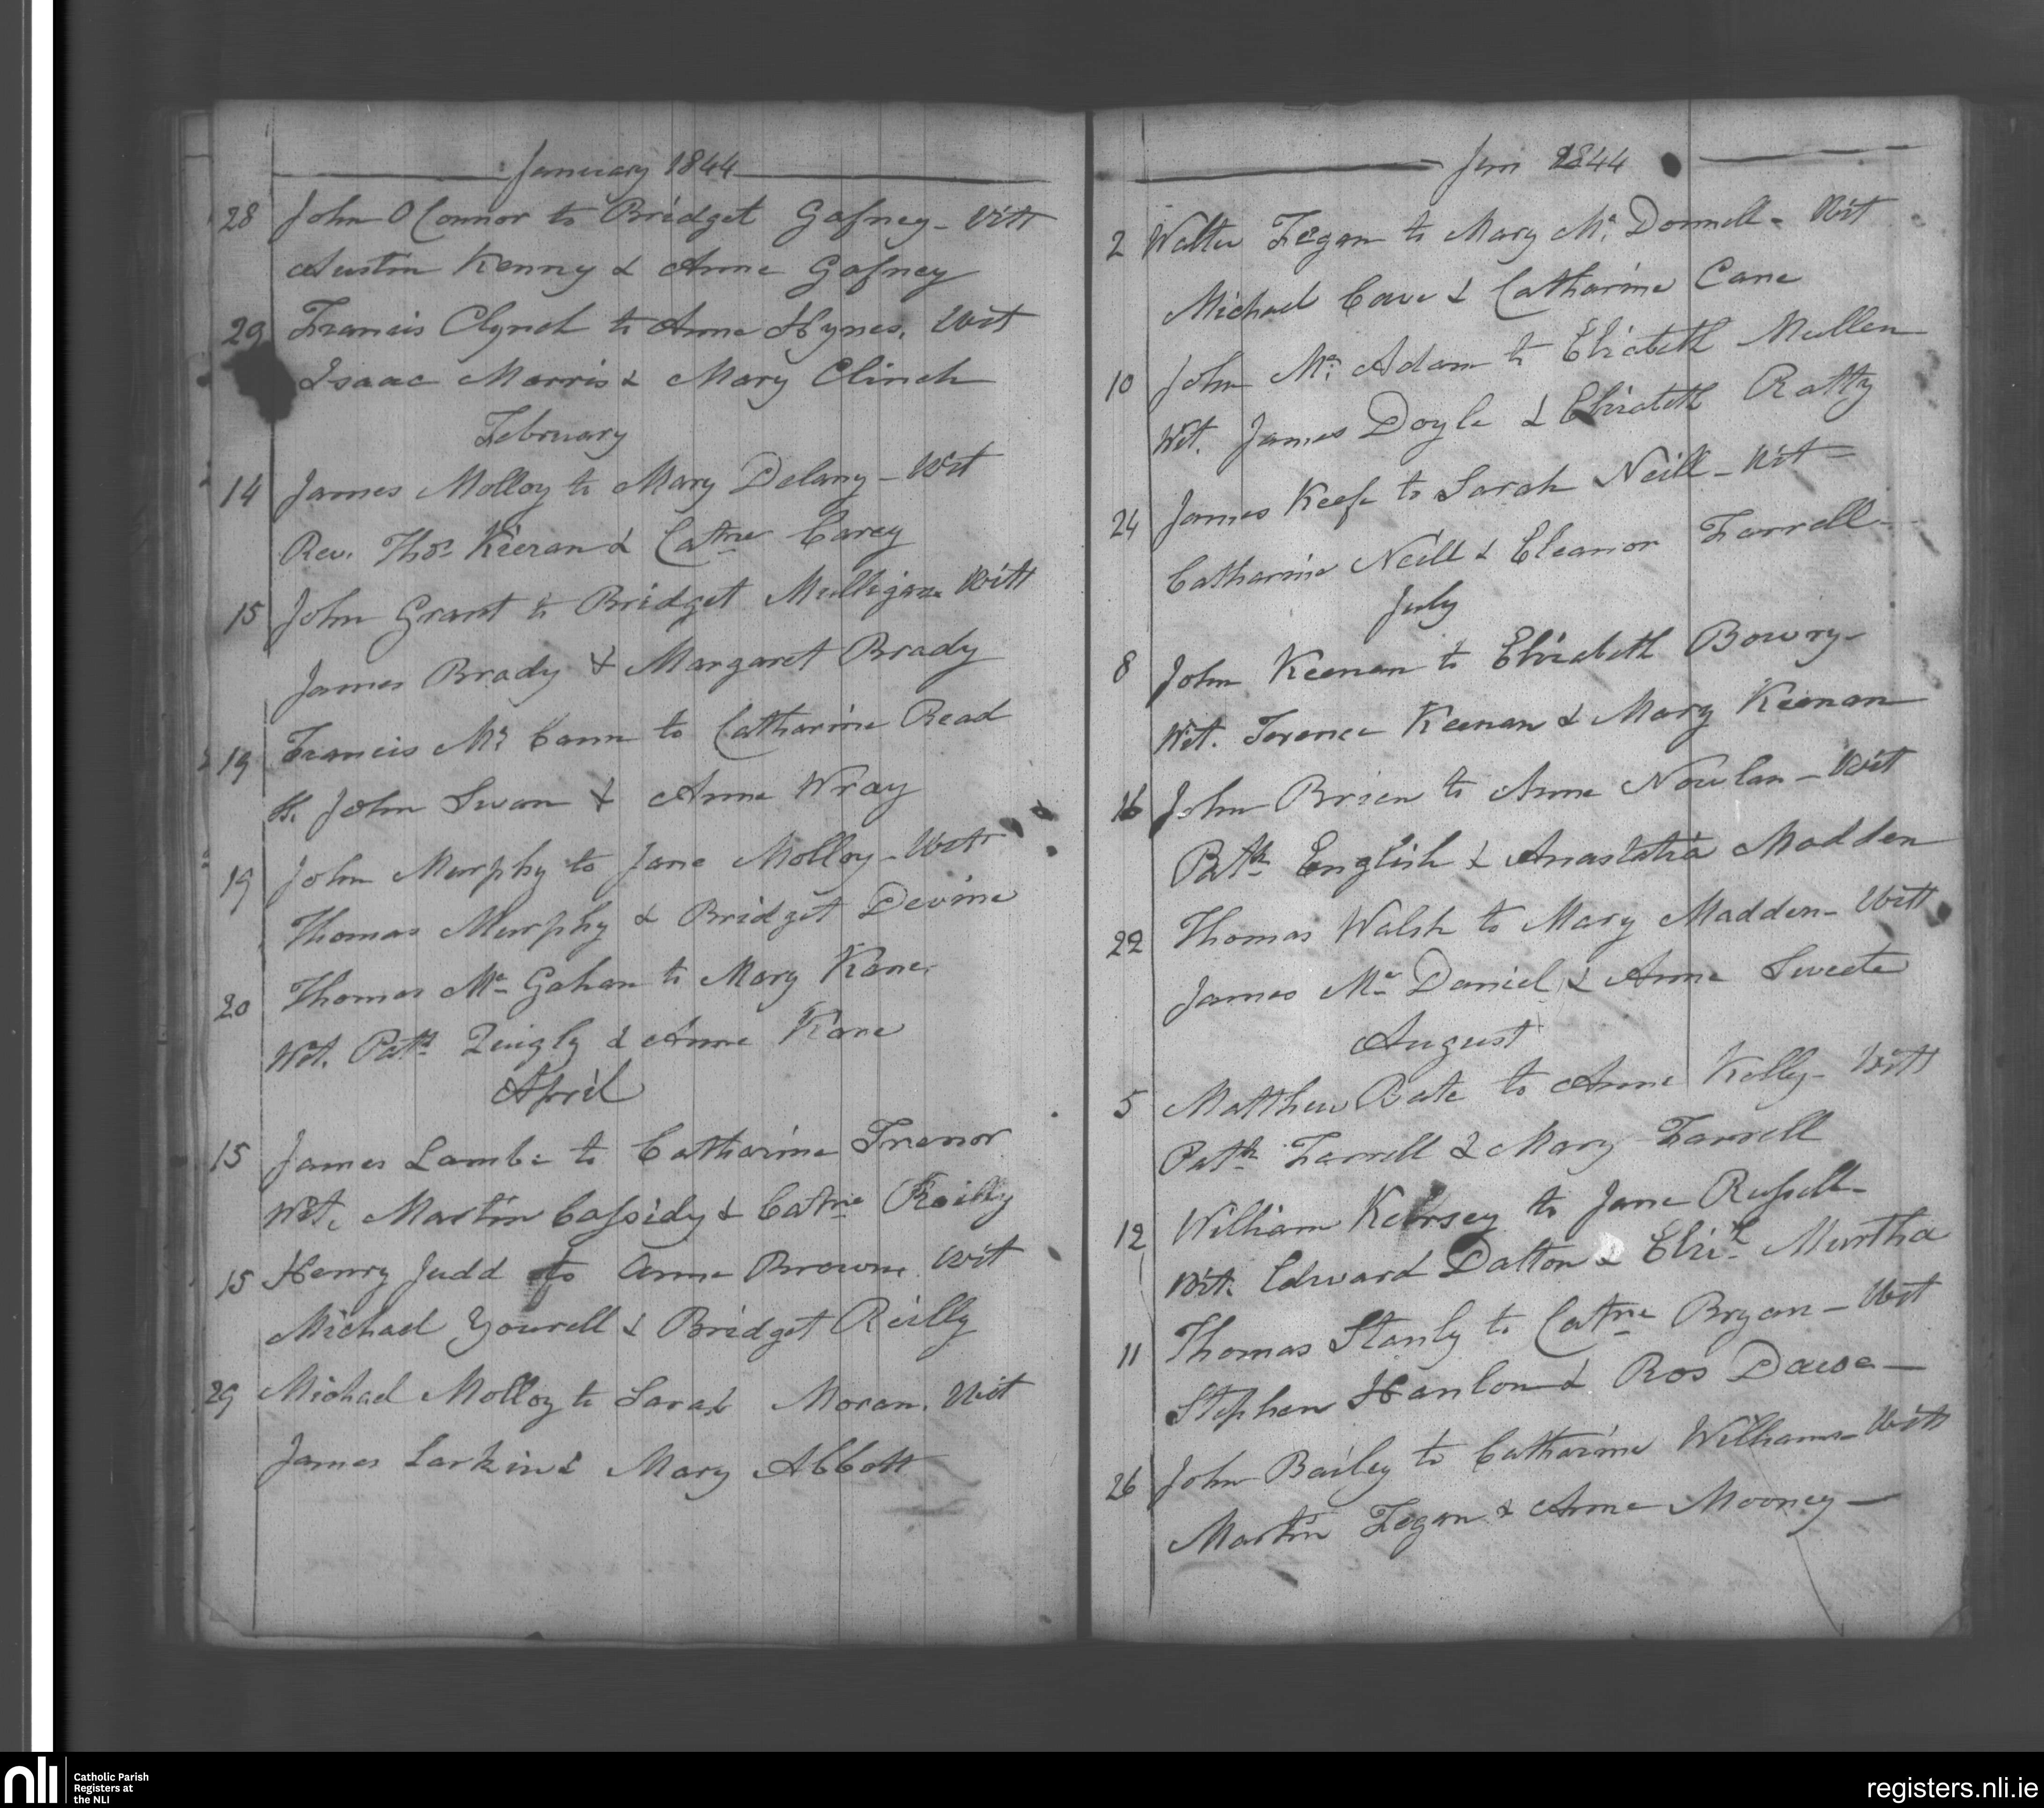 January 1844
28 John O Connor to Bridget Gafney - Witt
Austin Kenny & Anne Gafney
29 Francis Clynch to Anne Hynes. Wit
Isaac Morris & Mary Clinch
February
14 James Molloy to Mary Delany - Wit
Rev. Thos Kieran & Catne Carey
15 John Grant to Bridget Mulligan Witt
James Brady & Margaret Brady
19 Francis Mc Cann to Catharine Read
John Swan & Anne Wray
19 John Murphy to Jane Molloy - Witt
Thomas Murphy & Bridget Devine
20 Thomas Mc Gahan to Mary Kane.
Wit. Patk Quigly & Anne Kane
April
15 James Lambe to Catharine Trenor
Wit. Martin Cassidy & Catne Reilly
15 Henry Judd to Anne Browne Wit
Michael Yourell & Bridget Reilly
29 Michael Molloy to Sarah Moran. Wit
James Larkin & Mary Abbott
Jun 1844
2 Walter Fegan to Mary Mc Donnell - Wit
Michael Cane & Catharine Cane
10 John Mc Adam to Elizabeth Mullen
Wit. James Doyle & Elizabeth Ratty
24 James Keefe to Sarah Neill - Wit -
Catharine Neill & Eleanor Farrell -
July
8 John Keenan to Elizabeth Bowry -
Wit. Terence Keenan & Mary Keenan
16 John Brien to Anne Nowlan - Wit
Patk English & Anastatia Madden
22 Thomas Walsh to Mary Madden - Witt
James Mc Daniel & Anne Sweete
August
5 Matthew Bate to Anne Kelly - Witt
Patk Farrell & Mary Farrell
12 William Kersey to Jane Russell -
Wit. Edward Dalton & Elizh Murtha
11 Thomas Stanly to Catne Bryan - Wit
Stephen Hanlon & Ros Dawse -
26 John Bailey to Catharine Williams - Witt
Martin Fegan & Anne Mooney -
nli
Catholic Parish
Registers at
the NLI
registers.nli.ie